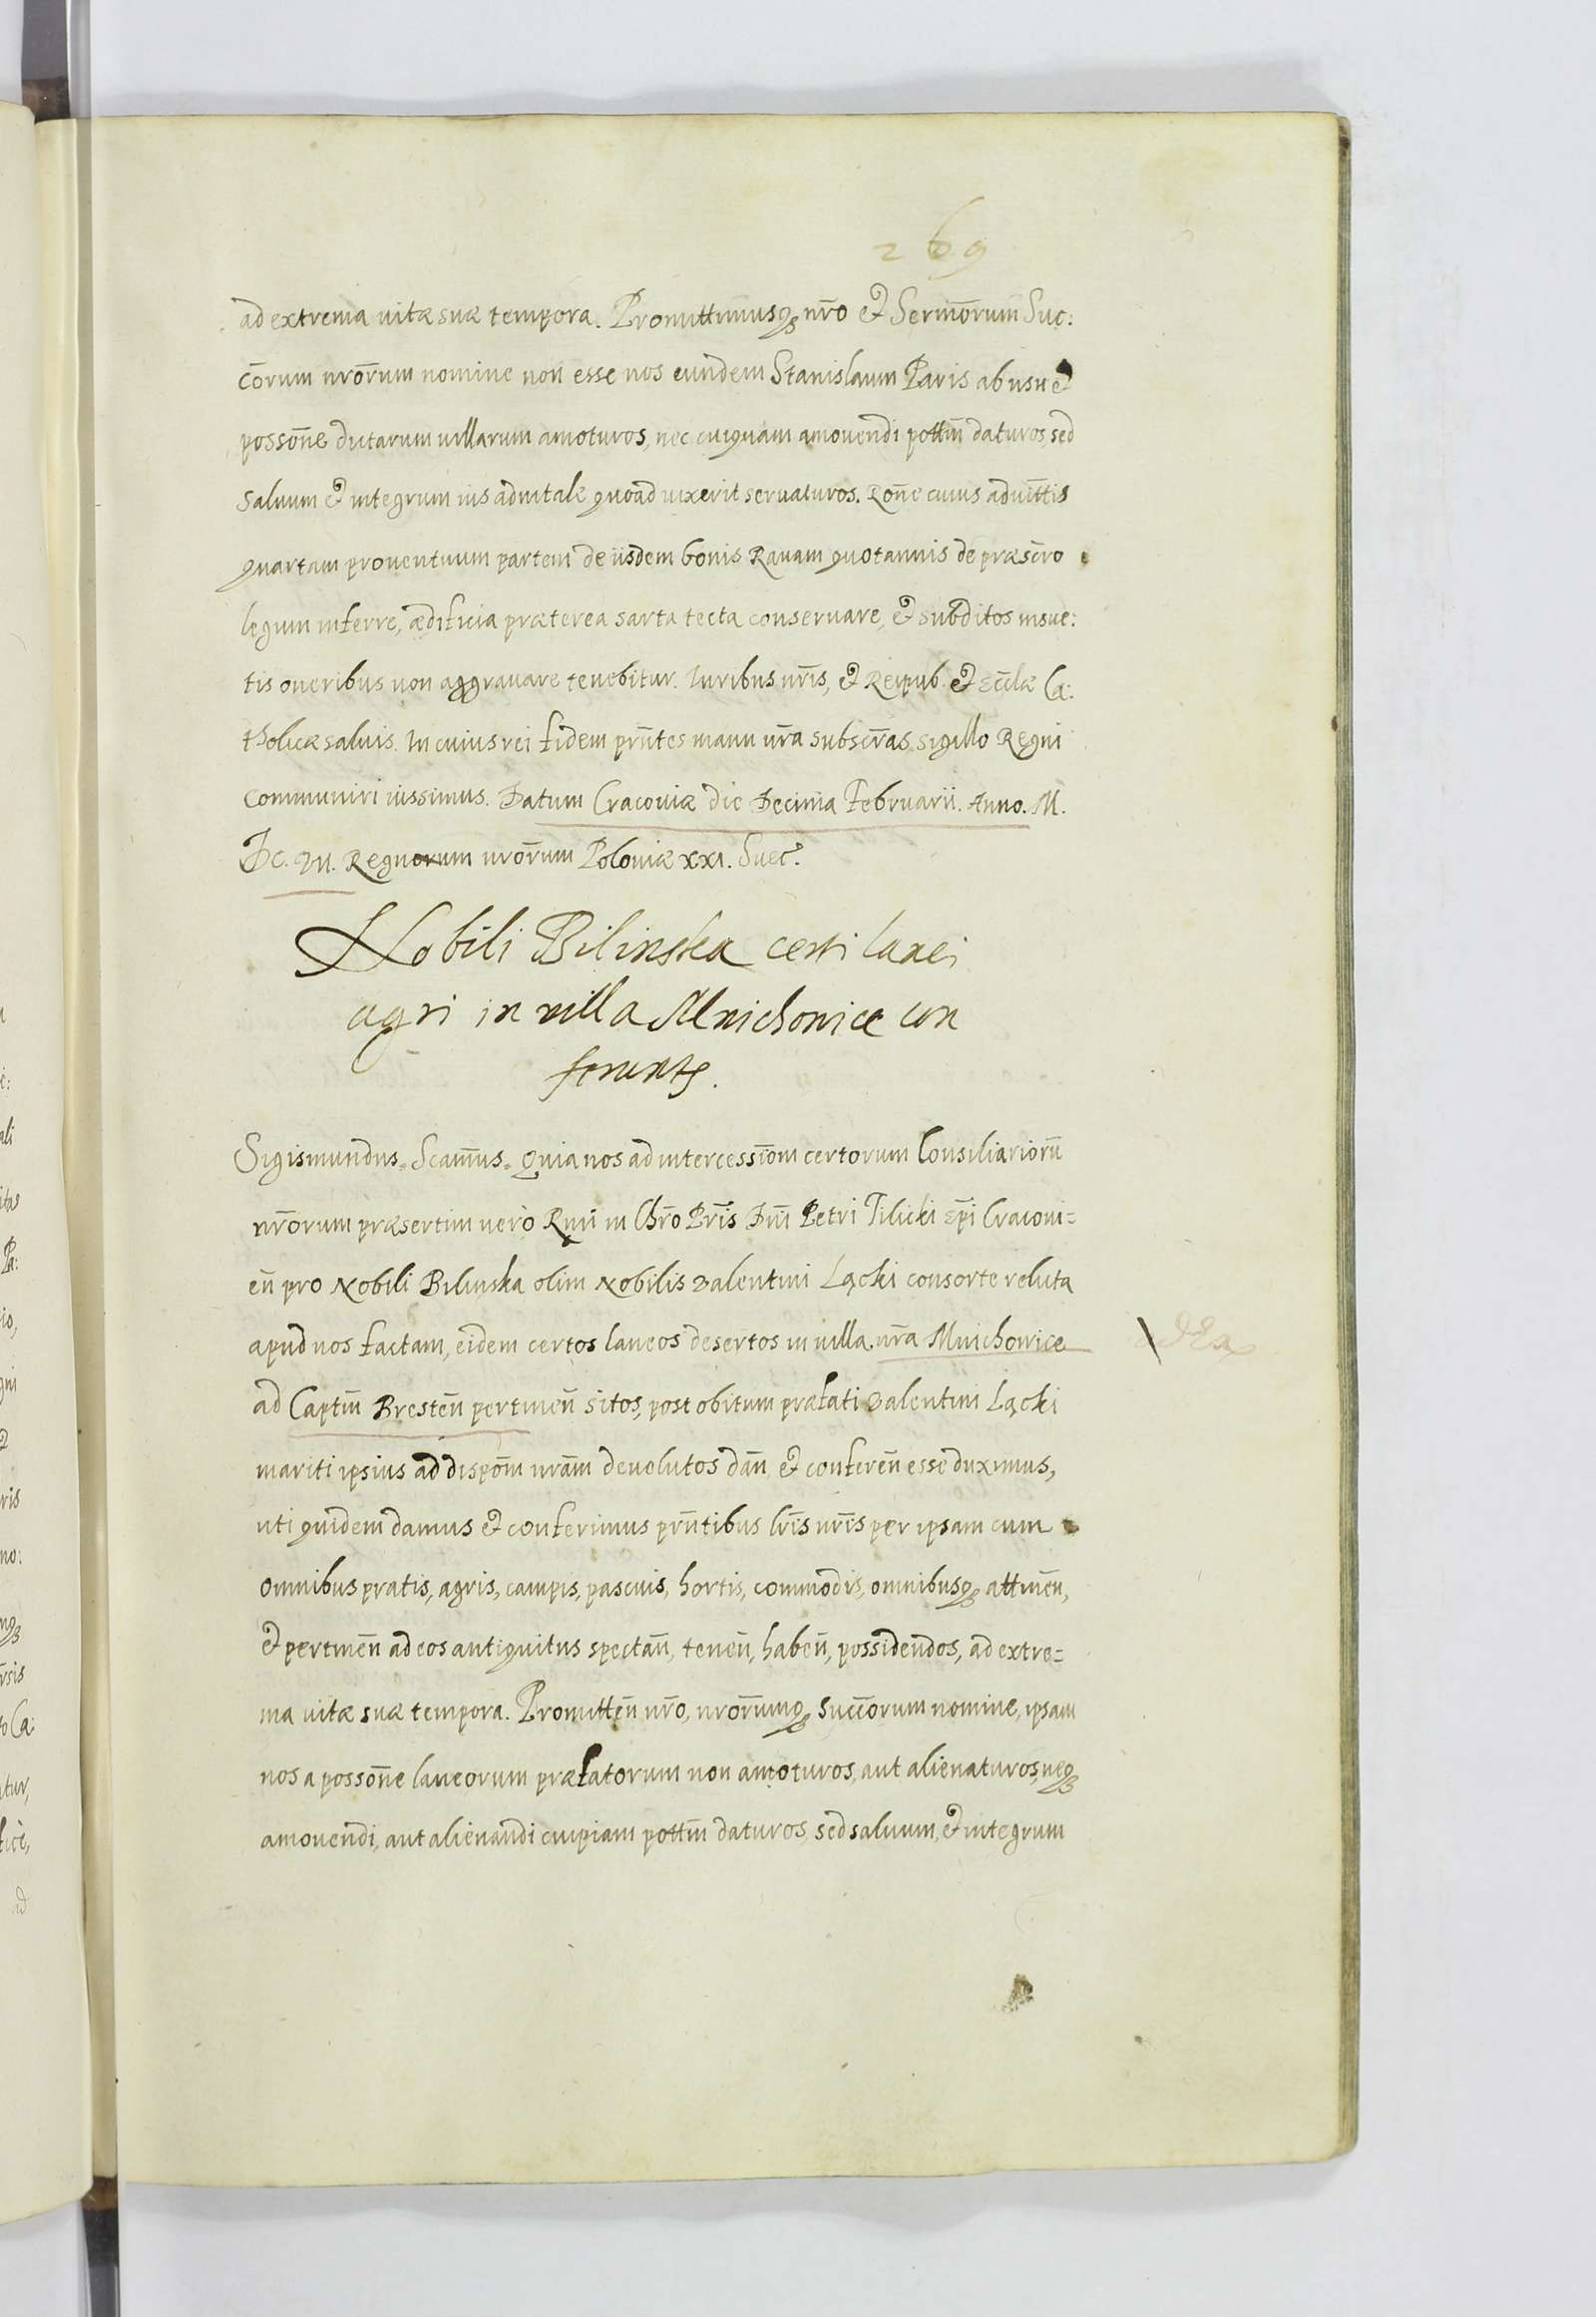 269
ad extrema uitæ suæ tempora. Promittimusqꝫ nr̄o et Serm̄orum Suc:
cōrum nrōrum nomine non esse nos eundem Stanislaum Paris ab usu et
possōne dictarum uillarum amoturos, nec cuiquam amouendi pottm̄ daturos, sed
saluum et integrum ius aduitale quoad uixerit seruaturos. Rōne cuius aduittis
quartam prouentuum partem de iisdem bonis Rauam quotannis de præscr̄o
legum inferre, ædificia præterea sarta tecta conseruare, et subditos insue:
tis oneribus non aggrauare tenebitur. Iuribus nr̄is, et Reipub. et Eccl̄æ Ca:
tholicæ saluis. In cuius rei fidem prn̄tes manu nr̄a subscr̄as, sigillo Regni
communiri iussimus. Datum Cracouiæ die Decima Februarii. Anno. M.
DC. VII. Regnorum nrōrum Poloniæ XXI. Suec.
Nobili Bilinska certi lanei
agri in villa Mnichowice con
feruntr.
Sigismundus. Scam̄us. Quia nos ad intercessiōm certorum Consiliariorū
nrōrum præsertim uerò Rmi in Chrō Pr̄is Dn̄i Petri Tilicki Ep̄i Cracoui=
en̄ pro Nobili Bilinska olim Nobilis Valentini Lącki consorte relicta
apud nos factam, eidem certos laneos desertos in uilla nr̄a Mnichowice
ad Captm̄ Bresten̄ pertinen̄ sitos, post obitum præfati Valentini Lącki
mariti ipsius ad dispōm nrām deuolutos dan̄ et conferen̄ esse duximus,
uti quidem damus et conferimus prn̄tibus lr̄is nr̄is per ipsam cum
omnibus pratis, agris, campis, pascuis, hortis, commodis, omnibusqꝫ attinen̄,
et pertinen̄ ad eos antiquitus spectan̄, tenen̄, haben̄, possidendos, ad extre=
ma uitæ suæ tempora. Promitten̄ nr̄o, nrōrumqꝫ succōrum nomine, ipsam
nos a possōne laneorum præfatorum non amoturos, aut alienaturos, neqꝫ
amouendi, aut alienandi cuipiam pottm̄ daturos, sed saluum, et integrum